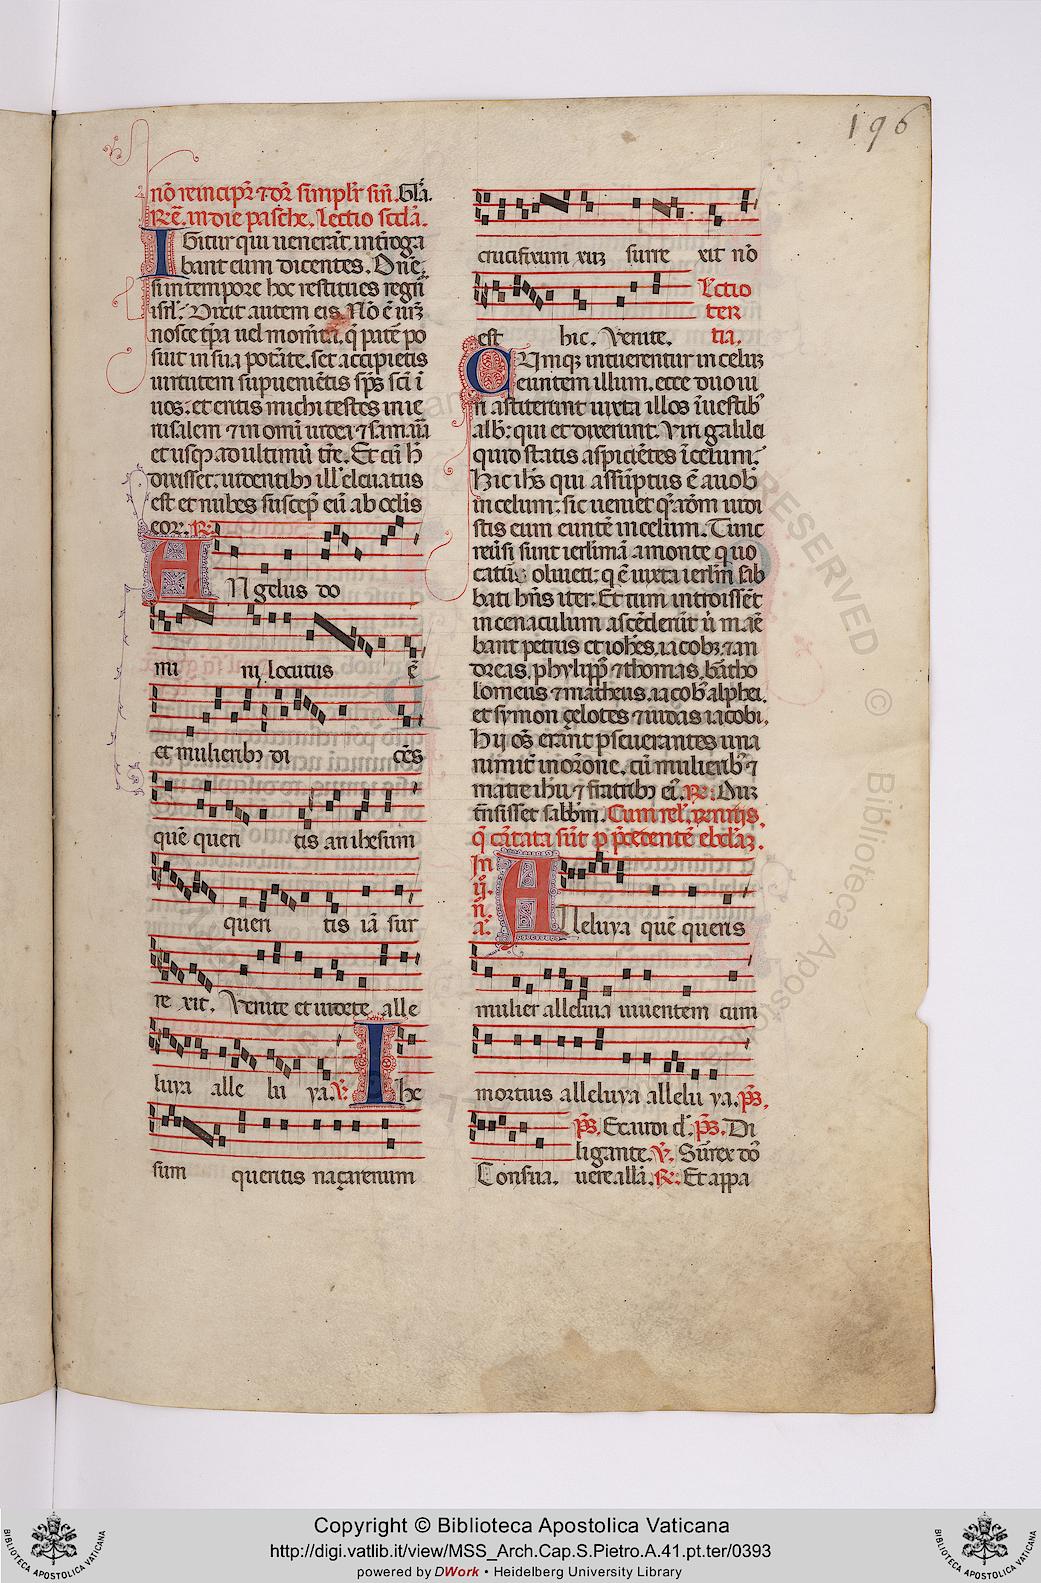 196
nō reincipr̄ ⁊ dr̄ simplr̄ sin̄. Gl̄a.
Re᷑. in die pasche. Lectio sc̄da.
Igitur qui uenerāt. int̄roga
bant eum dicentes. Dn̄e.
si in tempore hoc restitues regnū
isrl̄. Dixit autem eis. Nō ē ur̄z
nosce tp̄ra uel momēta. q̄ patē po
suit in sua potāte. set accipietis
uirtutem supuenientis sp̄s sc̄i ī
uos: et eritis michi testes in ie
rusalem ⁊ in omī iudea ⁊ sam̄ia
et usqꝫ ad ultimū tr̄e. Et cū h̄
dixisset. uidentibꝫ ill' eleuatus
est et nubes suscep̄ eū ab oc̄lis
eoꝝ. R̄.
Angelus do
mi nị locutus ē
et mulieribꝫ di cēs
quē queri tis an ihesum
queri tis iā sur
re xit. Venite et uidete alle
luya alle lu ya. V̄. Ihe
sum queritis naçarenum
crucifixum ꝛuꝫ surre xit nō
Lectio
ter
est hic. Venite. tia.
Cumqꝫ intuerentur in celuꝫ
euntem illum. ecce duo ui
ri astiterunt iuxta illos ī uestibꝫ
alb̄: qui et dixerunt. Viri galilei
quid statis aspiciētes ī celum?
Hic ih̄s qui assūptus ē a uobꝫ
in celum: sic ueniet q̄ādm̄ uidi
stis eum euntē in celum. Tunc
reūsi sunt ierl̄imā a monte q uo
catur oliueti: q ē iuxta ierl̄m sab
bati hn̄s iter. Et cum introissēt
in cenaculum ascēderūt u᷑ māe
bant petrus et ioh̄es. iacobꝫ ⁊ an
dreas. phylipp᷑ ⁊ thomas. bartho
lomeus ⁊ matheus. iacobꝫ alphei.
et symon çelotes ⁊ iudas iacobi.
Hij oēs erānt pseuerantes una
nimit̄ in or̄one. cū mulieribꝫ ⁊
matre ihū ⁊ fratribꝫ ei᷑. R̄. Duꝫ
trn̄sisset sabb̄m. Cum rel' ternijs.
q̄ cātata sūt p p̄cedentē ebd̄aꝫ.
In
uı̄.
n̄.
a.
Alleluya quē queris
mulier alleluia uiuentem cum
mortuis alleluya allelu ya. p̄s.
p̄s. Exaudi d'. p̄s. Di
ligante. V̄. Surrex dō
Confiia. uere allā. R̄. Et appa
Copyright © Biblioteca Apostolica Vaticana
http://digi.vatlib.it/view/MSS_Arch.Cap.S.Pietro.A.41.pt.ter/0393
powered by DWork • Heidelberg University Library